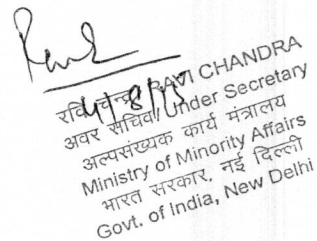 रवि चन्द्रा/RAVI CHANDRA
अवर सचिव/Under Secretary
अल्पसंख्यक कार्य मंत्रालय
Ministry of Minority Affairs
भारत सरकार, नई दिल्ली
Govt. of India, New Delhi